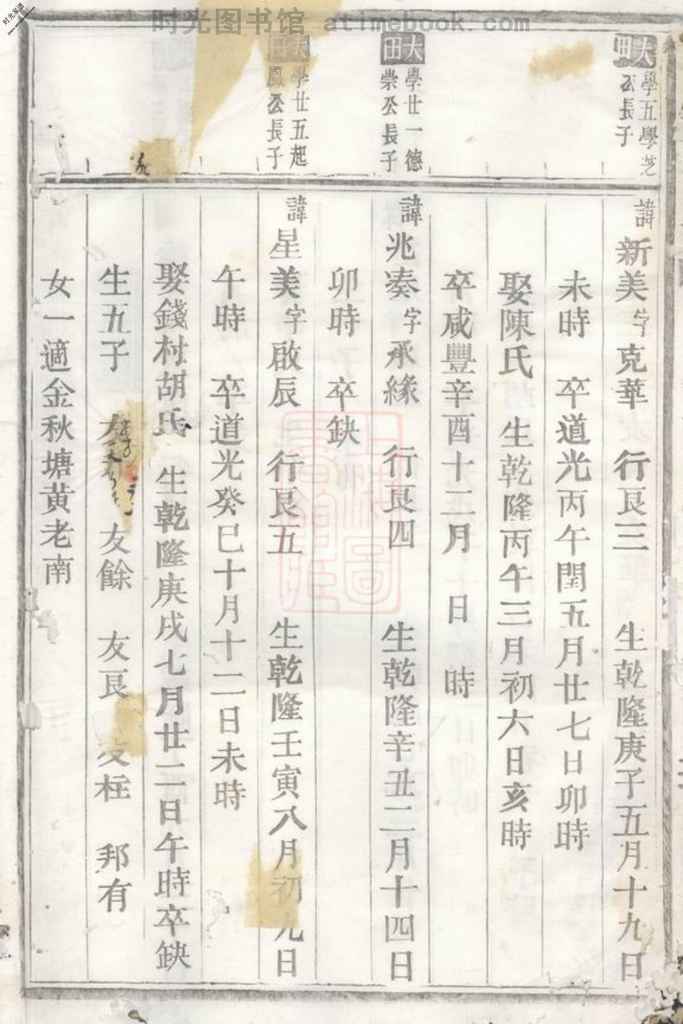 时光图书馆 atimebook.com
大田
學五學芝
公長子
諱新美字克華 行艮三 生乾隆庚子五月十九日
未時 卒道光丙午閏五月廿七日卯時
娶陳氏 生乾隆丙午三月初六日亥時
卒咸豐辛酉十二月 日 時
大田
學廿一德
崇公長子
諱兆奏字承緣 行艮四 生乾隆辛丑二月十四日
卯時 卒缺
學廿五起
鳳公長子
諱星美字啟辰 行艮五 生乾隆壬寅八月初九日
午時 卒道光癸巳十月十二日未時
娶錢村胡氏 生乾隆庚戌七月廿二日午時卒缺
生五子 友餘 友艮 友柱 邦有
女一適金秋塘黃老南